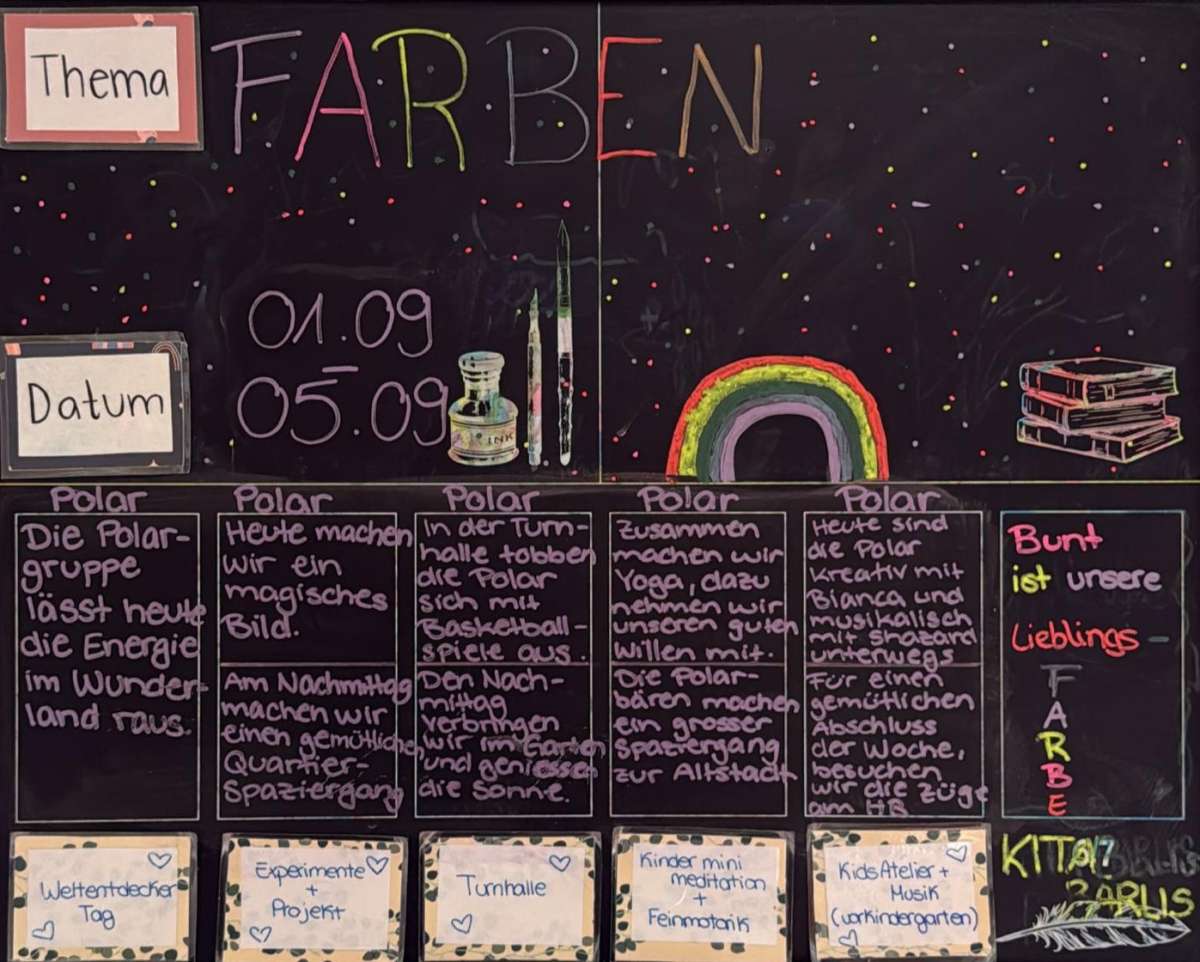 Thema
FARBEN
Datum
01.09
–
05.09
INK
Polar
Die Polar-
gruppe
lässt heute
die Energie
im Wunder-
land raus.
Polar
Heute machen
wir ein
magisches
Bild.
Am Nachmittag
machen wir
einen gemütlichen
Quartier-
Spaziergang
Polar
In der Turn-
halle tobben
die Polar
sich mit
Basketball-
spiele aus.
Den Nach-
mittag
verbringen
wir im Garten
und geniessen
die Sonne.
Polar
Zusammen
machen wir
Yoga, dazu
nehmen wir
unseren guten
Willen mit.
Die Polar-
bären machen
ein grosser
Spaziergang
zur Altstadt
Polar
Heute sind
die Polar
kreativ mit
Bianca und
musikalisch
mit Shazard
unterwegs
Für einen
gemütlichen
Abschluss
der Woche,
besuchen
wir die Züge
am HB
Bunt
ist unsere
Lieblings-
F
A
R
B
E
Weltentdecker
Tag
Experimente
+
Projekt
Turnhalle
Kinder mini
meditation
+
Feinmotorik
Kids Atelier +
Musik
(vorkindergarten)
KITA